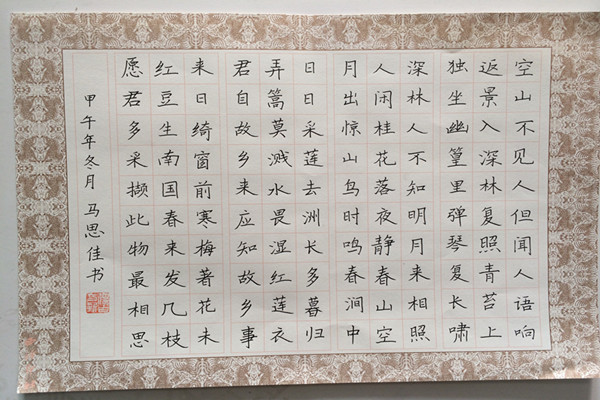 空山不见人但闻人语响
返景入深林复照青苔上
独坐幽篁里弹琴复长啸
深林人不知明月来相照
人闲桂花落夜静春山空
月出惊山鸟时鸣春涧中
日日采莲去洲长多暮归
弄篙莫溅水畏湿红莲衣
君自故乡来应知故乡事
来日绮窗前寒梅著花未
红豆生南国春来发几枝
愿君多采撷此物最相思
甲午年冬月 马思佳书